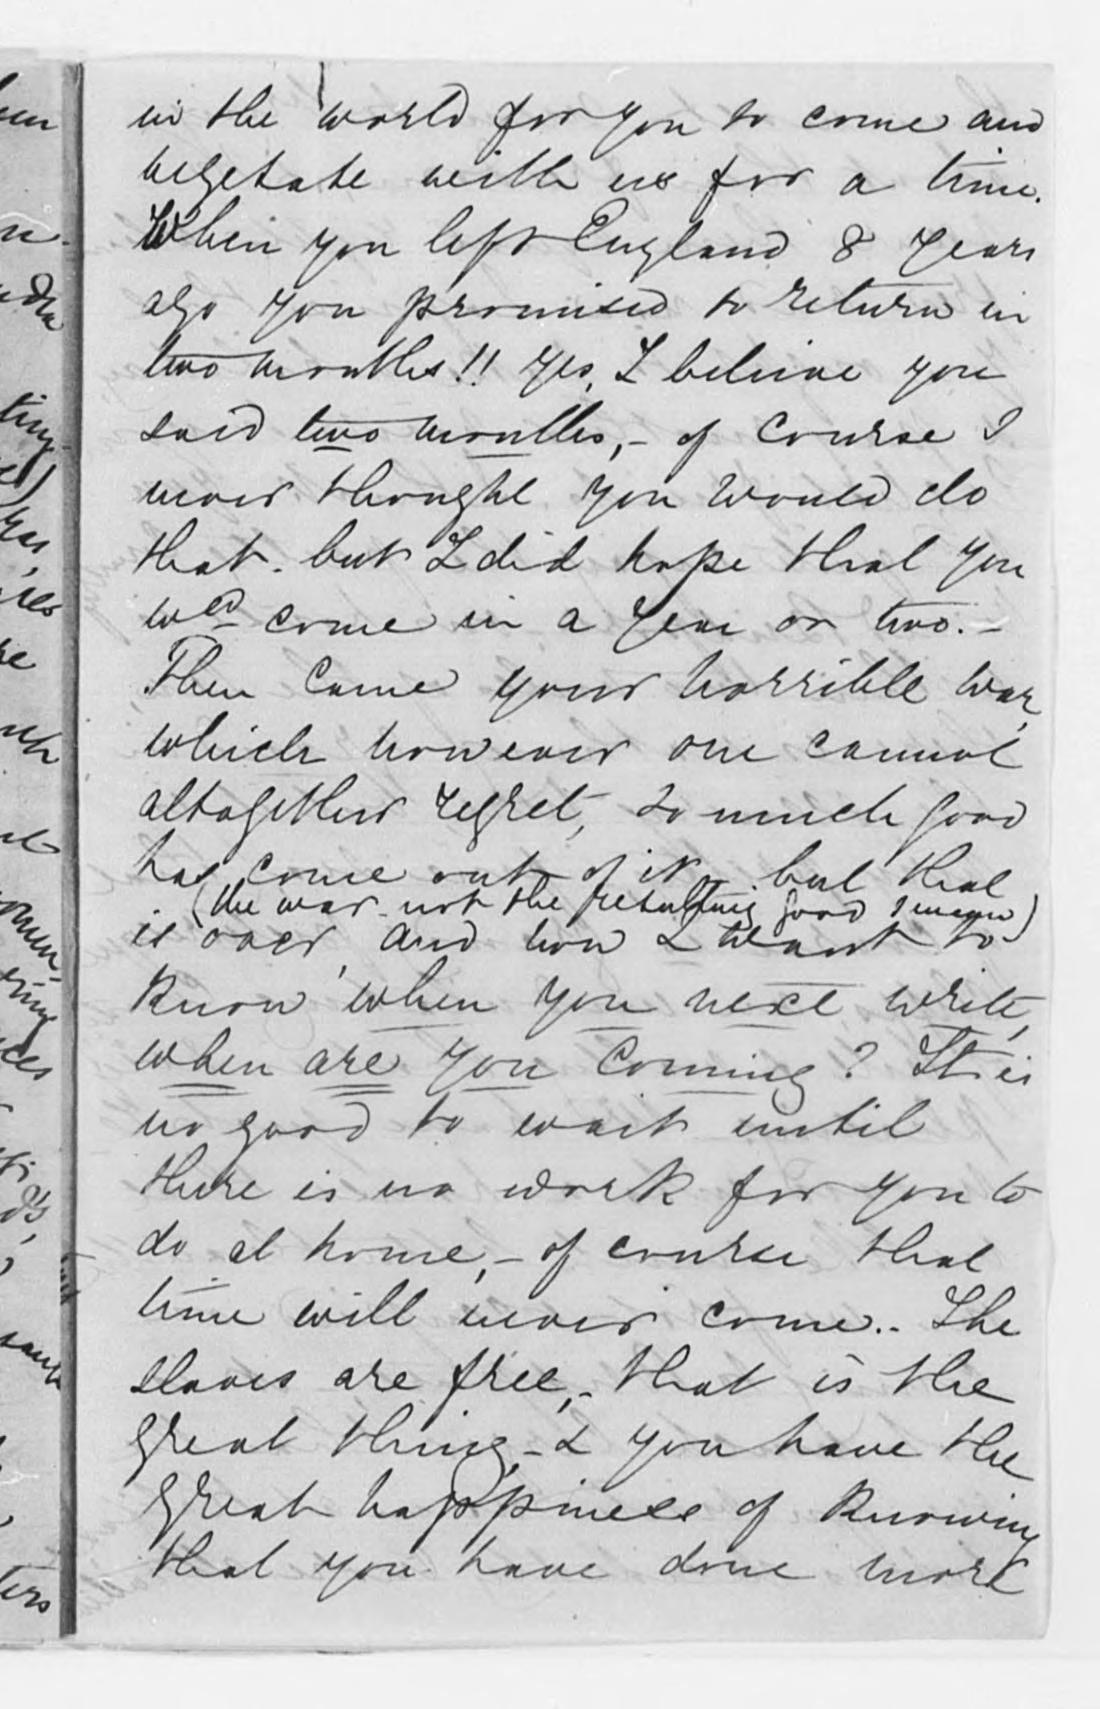 in the world for you to come and
vegetate with us for a time.
When you left England 8 years
ago you promised to return in
two months!! Yes, I believe you
said two months, - of course I
never thought you would do
that. but I did hope that you
wed come in a year or two. -
Then came your horrible war,
which however one cannot
altogether regret, so much good
has come out of it, but that
(the war - not the resulting good I mean)
is over, and now I want to
know when you next write,
when are you coming? It is
no good to wait until
there is no work for you to
do at home, - of course that
time will never come.. The
slaves are free, - that is the
great thing, - & you have the
great happiness of knowing
that you have done more